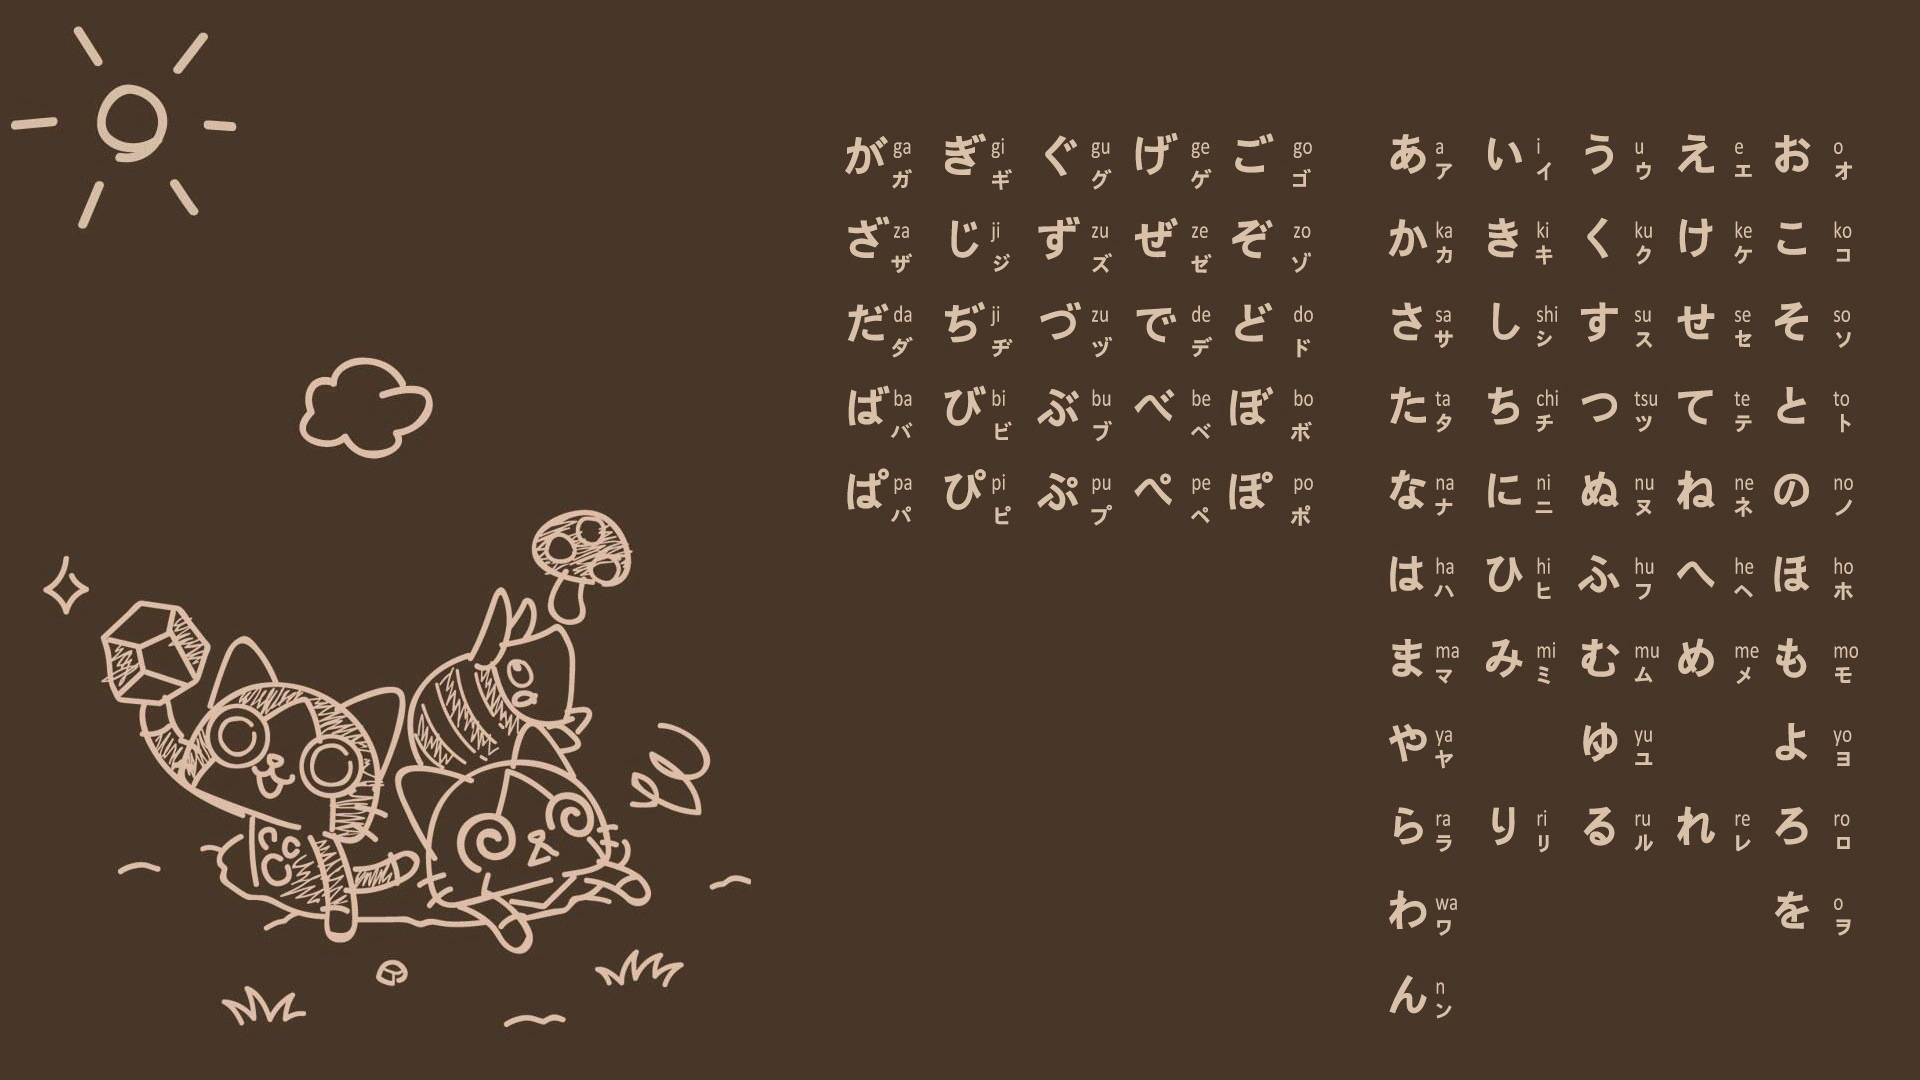 が ga ガ ぎ gi ギ ぐ gu グ げ ge ゲ ご go ゴ
ざ za ザ じ ji ジ ず zu ズ ぜ ze ゼ ぞ zo ゾ
だ da ダ ぢ ji ヂ づ zu ヅ で de デ ど do ド
ば ba バ び bi ビ ぶ bu ブ べ be ベ ぼ bo ボ
ぱ pa パ ぴ pi ピ ぷ pu プ ぺ pe ペ ぽ po ポ
あ a ア い i イ う u ウ え e エ お o オ
か ka カ き ki キ く ku ク け ke ケ こ ko コ
さ sa サ し shi シ す su ス せ se セ そ so ソ
た ta タ ち chi チ つ tsu ツ て te テ と to ト
な na ナ に ni ニ ぬ nu ヌ ね ne ネ の no ノ
は ha ハ ひ hi ヒ ふ hu フ へ he ヘ ほ ho ホ
ま ma マ み mi ミ む mu ム め me メ も mo モ
や ya ヤ ゆ yu ユ よ yo ヨ
ら ra ラ り ri リ る ru ル れ re レ ろ ro ロ
わ wa ワ を o ヲ
ん n ン